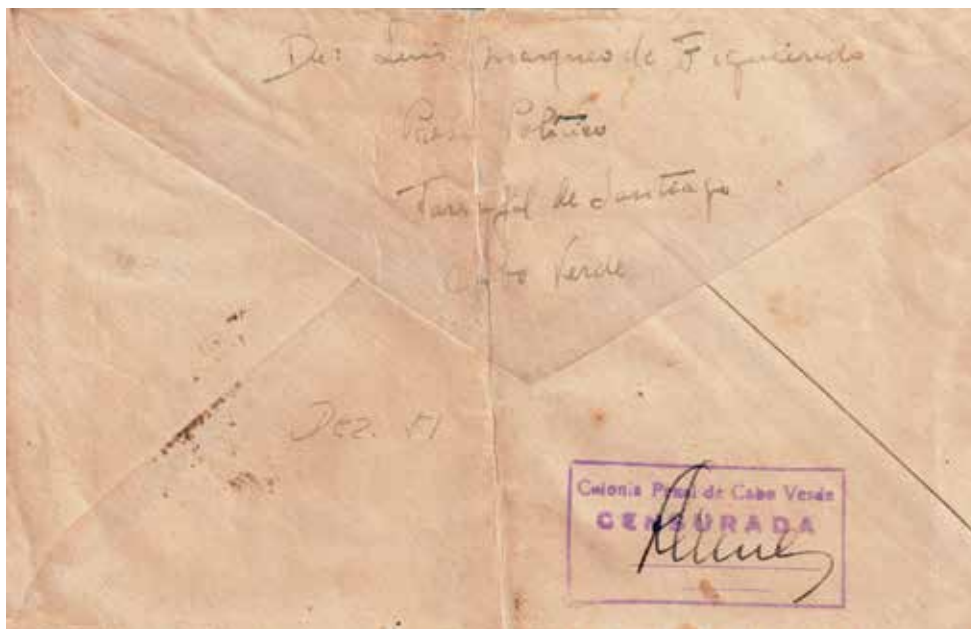 De: Luis Marques de Figueiredo
Preso Politico
Tarrafal de Santiago
Cabo Verde
Dez.
Colonia Penal de Cabo Verde
CENSURADA